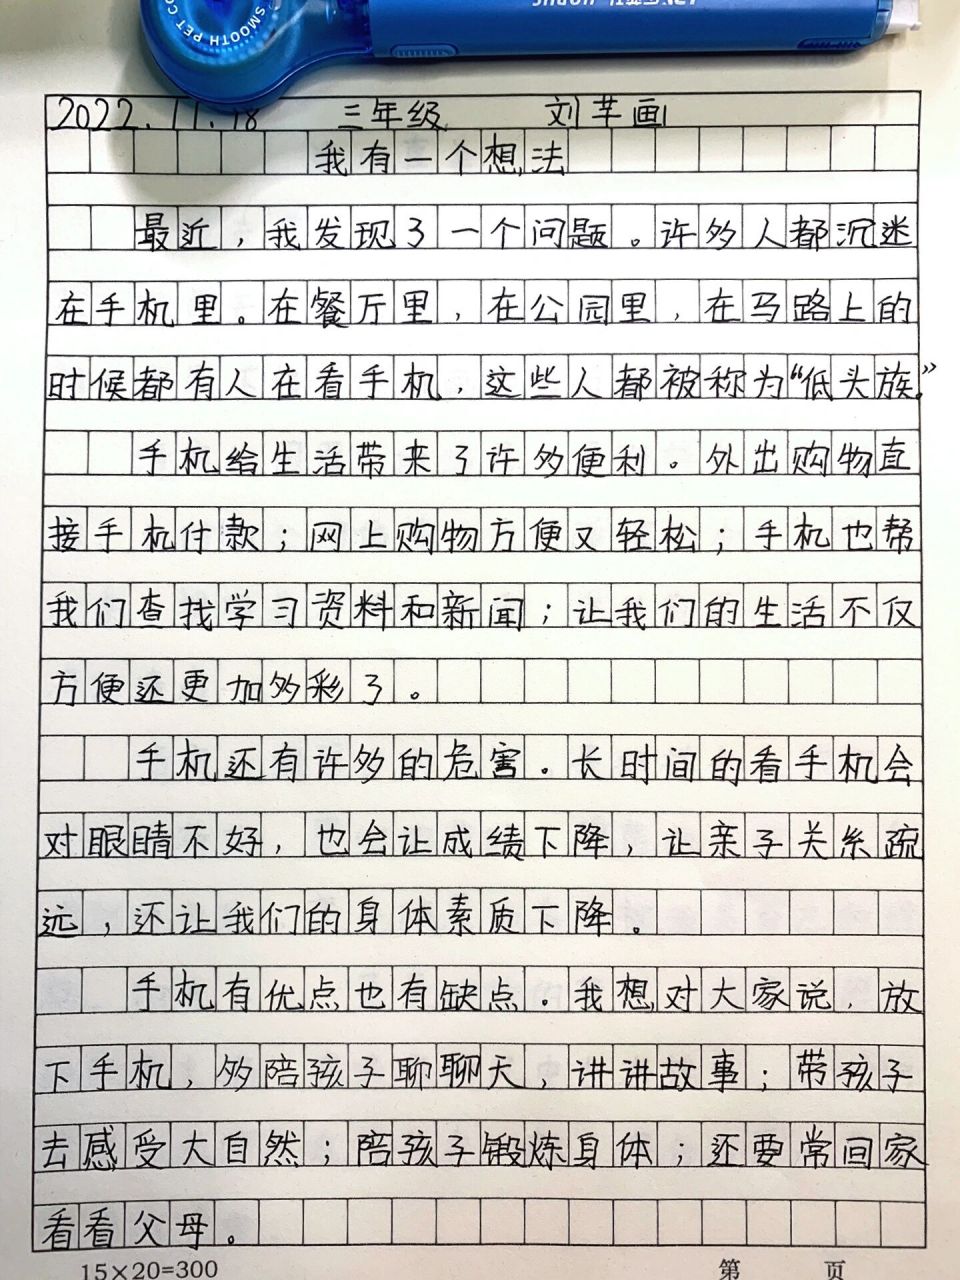 SMOOTH PET CO
2022.11.18 三年级 刘芊画
我有一个想法
最近，我发现了一个问题。许多人都沉迷
在手机里。在餐厅里，在公园里，在马路上的
时候都有人在看手机，这些人都被称为“低头族”
手机给生活带来了许多便利。外出购物直
接手机付款；网上购物方便又轻松；手机也帮
我们查找学习资料和新闻；让我们的生活不仅
方便还更加多彩了。
手机还有许多的危害。长时间的看手机会
对眼睛不好，也会让成绩下降，让亲子关系疏
远，还让我们的身体素质下降。
手机有优点也有缺点。我想对大家说，放
下手机，多陪孩子聊聊天，讲讲故事；带孩子
去感受大自然；陪孩子锻炼身体；还要常回家
看看父母。
15×20=300 第 页